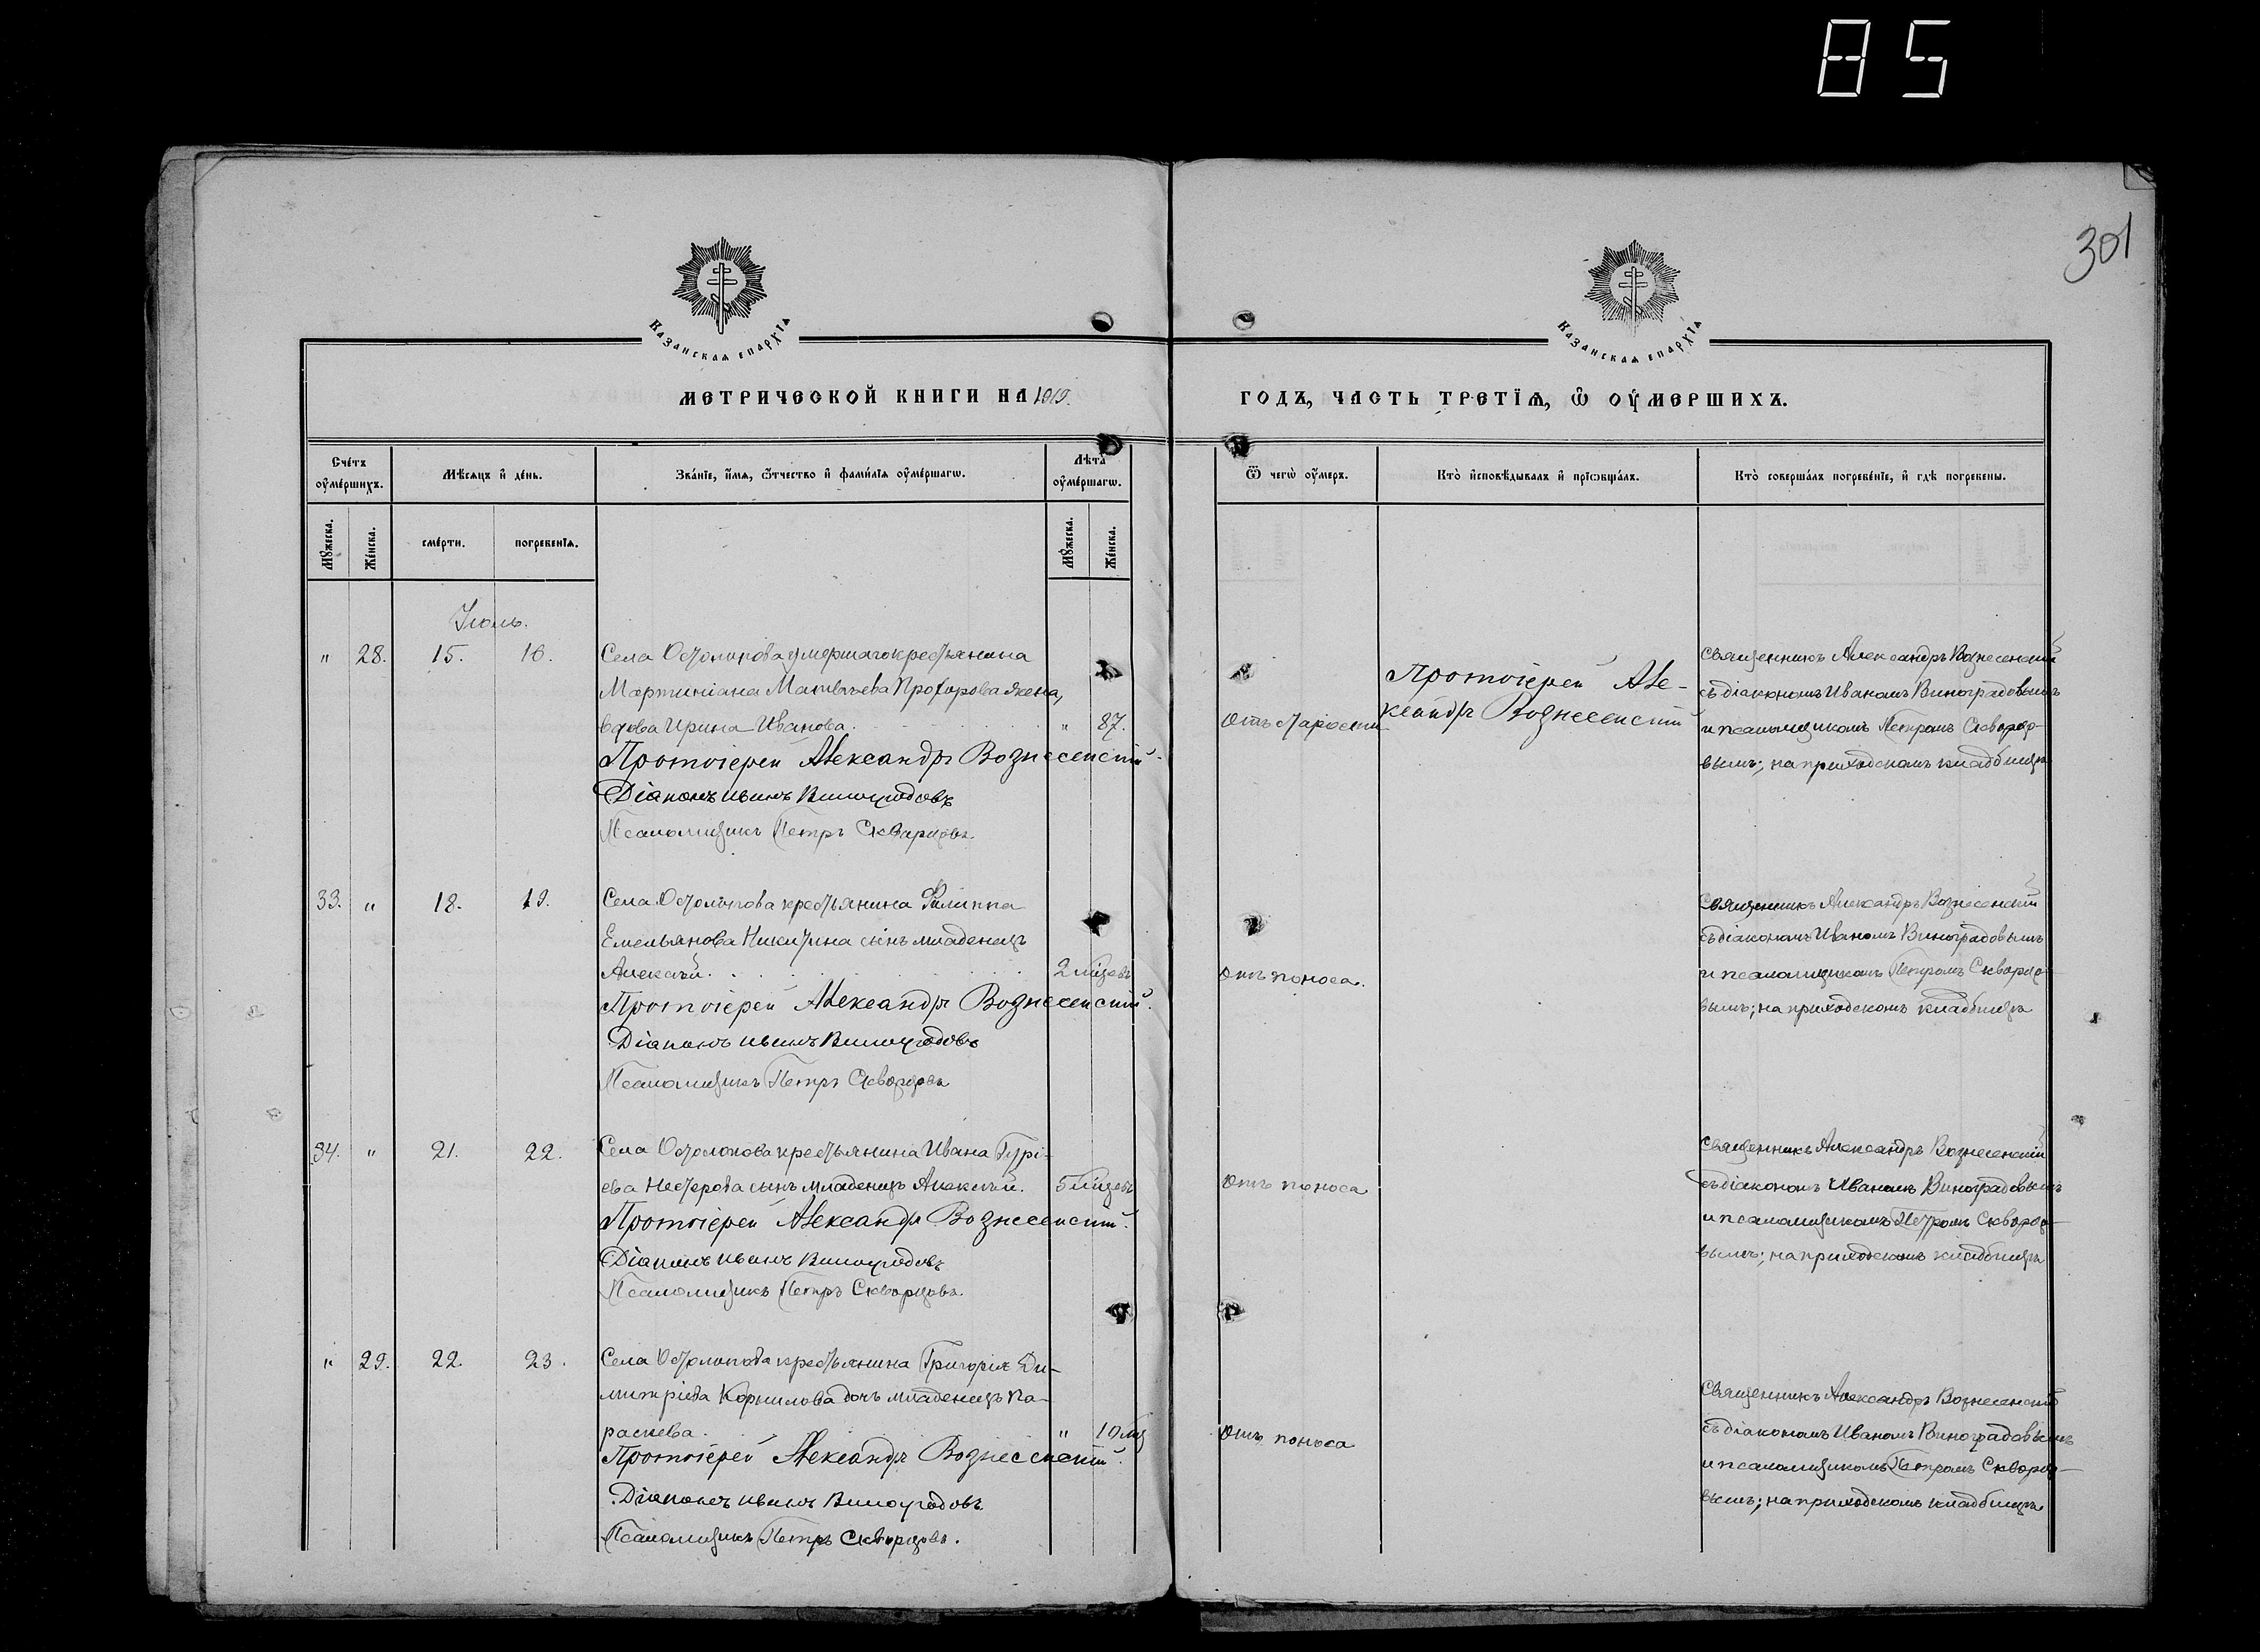 85
301
Казанская епархїѧ
Казанская епархїѧ
МЕТРИЧЕСКОЙ КНИГИ НА 1919.
ГОДЪ, ЧАСТЬ ТРЕТЇѦ, Ѡ ОУМЕРШИХЪ.
Сче́тъ оу҆ме́ршихъ.
Мѣ́сѧцъ и҆ де́нь.
Зва́нїе, и҆́мѧ, ѻ҆́тчество и҆ фами́лїѧ оу҆ме́ршагѡ.
Лѣ́та оу҆ме́ршагѡ.
Ѿ чегѡ̀ оу҆́меръ.
Кто̀ и҆сповѣ́дывалъ и҆ прїѡбща́лъ.
Кто̀ соверша́лъ погребе́нїе, и҆ гдѣ̀ погребены.
Мꙋ́жеска.
Же́нска.
сме́рти.
погребе́нїѧ.
Мꙋ́жеска.
Же́нска.
Іюль.
" 28. 15. 16. Села Остолопова умершаго крестьянина
Мартиніана Матвѣева Прохорова жена,
вдова Ирина Иванова. " 87.
Протоіерей Александръ Вознесенскій.
Діаконъ Иванъ Виноградовъ
Псаломщикъ Петръ Скворцовъ.
Отъ старости
Протоіерей Але-
ксандръ Вознесенскій
Священникъ Александръ Вознесенскій
съ діакономъ Иваномъ Виноградовымъ
и псаломщикомъ Петромъ Скворцо-
вымъ; на приходскомъ кладбищѣ
33. " 18. 19. Села Остолопова крестьянина Филиппа
Емельянова Никитина сынъ младенецъ
Алексѣй. 2 мѣсяц.
Протоіерей Александръ Вознесенскій.
Діаконъ Иванъ Виноградовъ
Псаломщикъ Петръ Скворцовъ
Отъ поноса.
Священникъ Александръ Вознесенскій
съ діакономъ Иваномъ Виноградовымъ
и псаломщикомъ Петромъ Скворцо-
вымъ; на приходскомъ кладбищѣ
34. " 21. 22. Села Остолопова крестьянина Ивана Гурі-
ева Нестерова сынъ младенецъ Алексѣй. 5 мѣсяц.
Протоіерей Александръ Вознесенскій.
Діаконъ Иванъ Виноградовъ
Псаломщикъ Петръ Скворцовъ.
Отъ поноса
Священникъ Александръ Вознесенскій
съ діакономъ Иваномъ Виноградовымъ
и псаломщикомъ Петромъ Скворцо-
вымъ; на приходскомъ кладбищѣ
" 29. 22. 23. Села Остолопова крестьянина Григорія Ди-
митріева Корнилова дочь младенецъ Па-
раскева. " 10 мѣс
Протоіерей Александръ Вознесенскій.
Діаконъ Иванъ Виноградовъ
Псаломщикъ Петръ Скворцовъ.
Отъ поноса
Священникъ Александръ Вознесенскій
съ діакономъ Иваномъ Виноградовымъ
и псаломщикомъ Петромъ Скворцо-
вымъ; на приходскомъ кладбищѣ